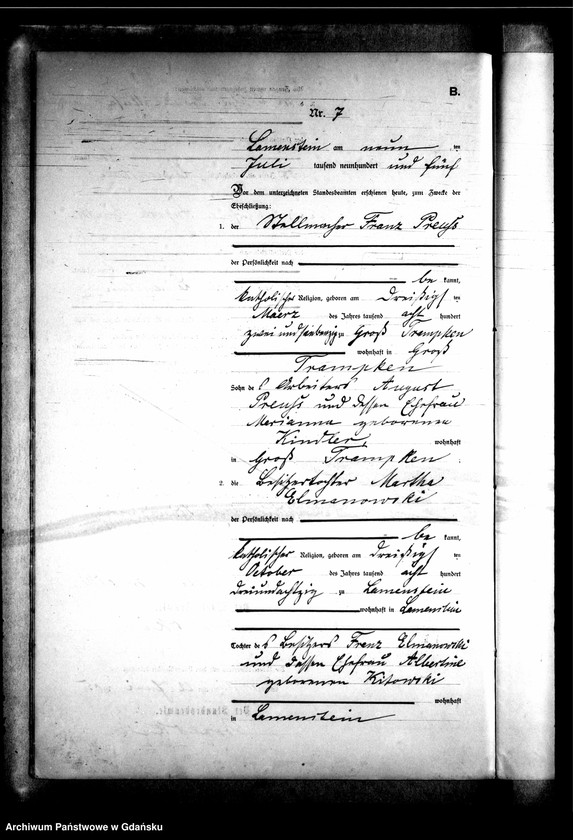 B.
Nr. 7
Lamenstein am neun ten
Juli tausend neunhundert und fünf
Vor dem unterzeichneten Standesbeamten erschienen heute, zum Zwecke der
Eheschließung:
1. der Stellmacher Franz Preuss
der Persönlichkeit nach
be kannt,
katholischer Religion, geboren am dreißigs ten
Maerz des Jahres tausend acht hundert
zwei und siebenzig zu Groß Trampken
wohnhaft in Groß
Trampken
Sohn des Arbeiters August
Preuss und dessen Ehefrau
Marianna geborenen
Kindler, wohnhaft
in Groß Trampken
2. die Besitzertochter Martha
Elmanowski
der Persönlichkeit nach
be kannt,
katholischer Religion, geboren am dreißigs ten
October des Jahres tausend acht hundert
dreiundachtzig zu Lamenstein
wohnhaft in Lamenstein
Tochter des Besitzers Franz Elmanowski
und dessen Ehefrau Albertine
geborenen Kitowski
wohnhaft
in Lamenstein
Archiwum Państwowe w Gdańsku